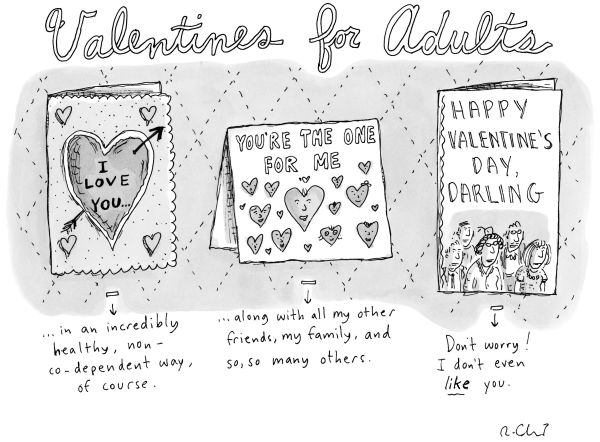 Valentines for Adults
I
LOVE
YOU...
...in an incredibly
healthy, non-
co-dependent way,
of course.
YOU'RE THE ONE
FOR ME
...along with all my other
friends, my family, and
so, so many others.
HAPPY
VALENTINE'S
DAY,
DARLING
Don't worry!
I don't even
like you.